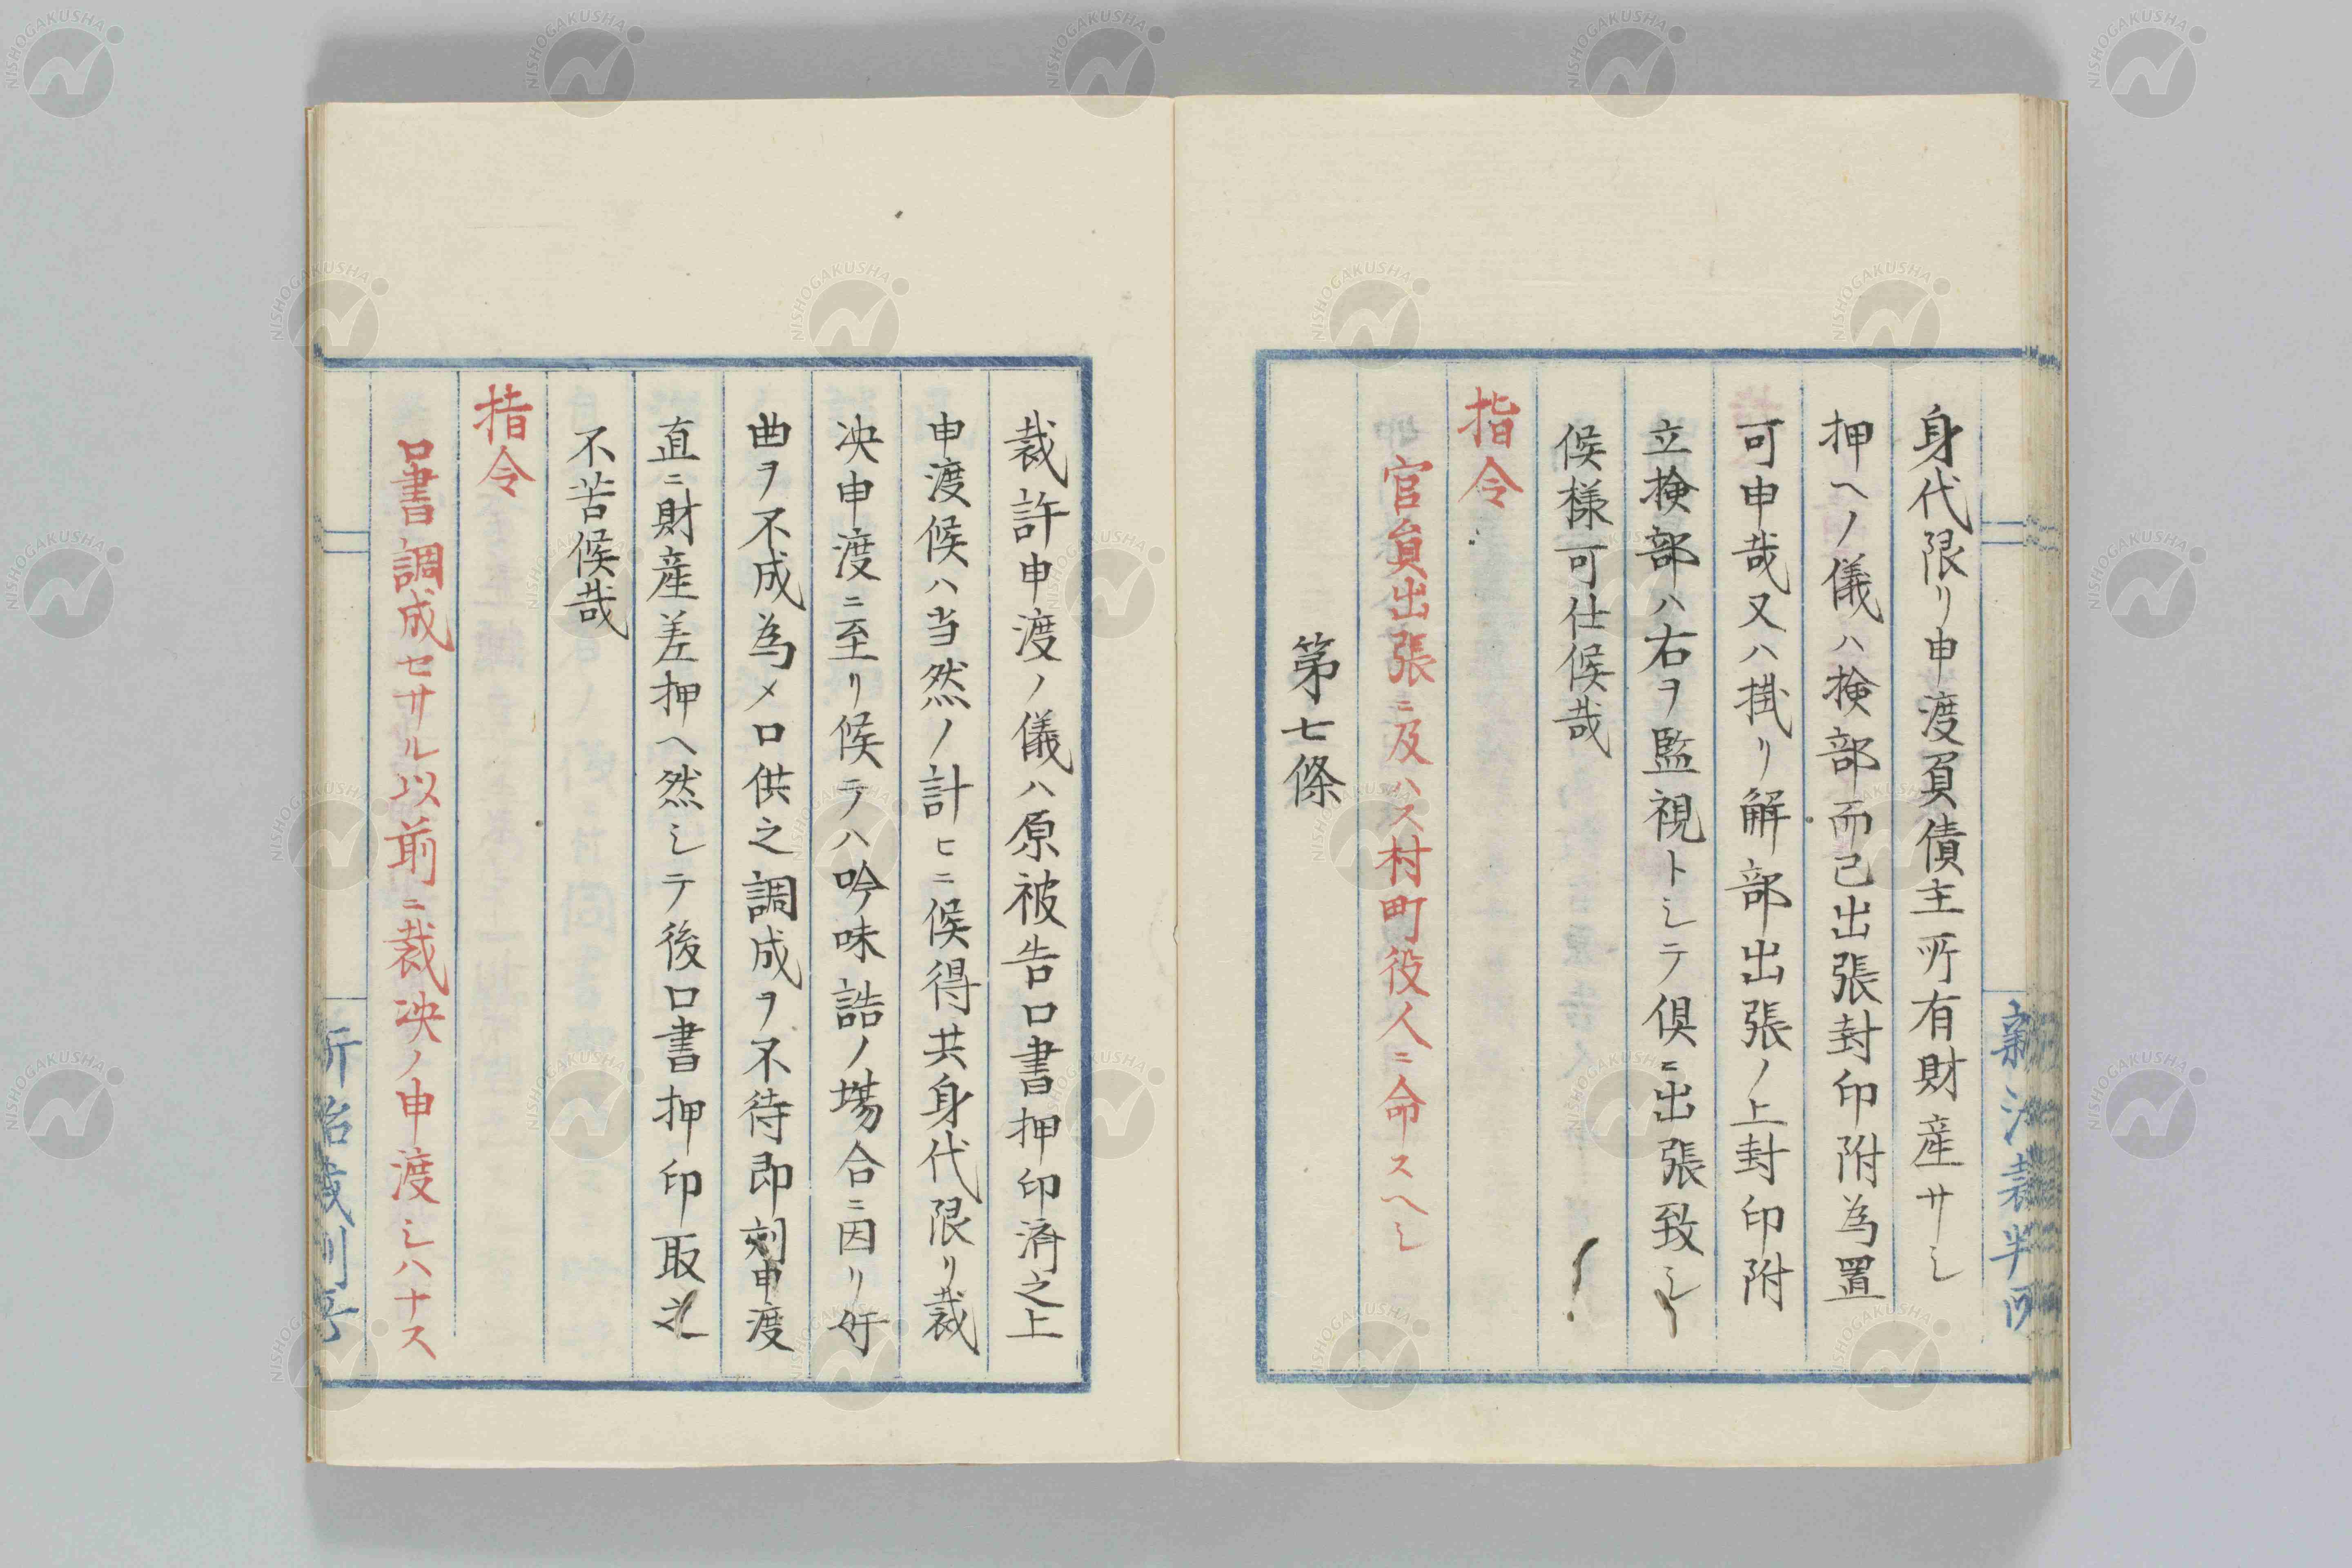 身代限リ申渡負債主所有財産サシ
押ヘノ儀ハ検部而已出張封印附為置
可申哉又ハ掛リ解部出張ノ上封印附
立検部ハ右ヲ監視トシテ倶ニ出張致シ
候様可仕候哉
指令
官員出張ニ及ハス村町役人ニ命スヘシ
第七條
裁許申渡ノ儀ハ原被告口書押印済之上
申渡候ハ当然ノ計ヒニ候得共身代限リ裁
决申渡ニ至リ候テハ吟味詰ノ場合ニ因リ奸
曲ヲ不成為メ口供之調成ヲ不待即刻申渡
直ニ財産差押ヘ然シテ後口書押印取之
不苦候哉
指令
口書調成セサル以前ニ裁决ノ申渡シハナス
NISHOGAKUSHA